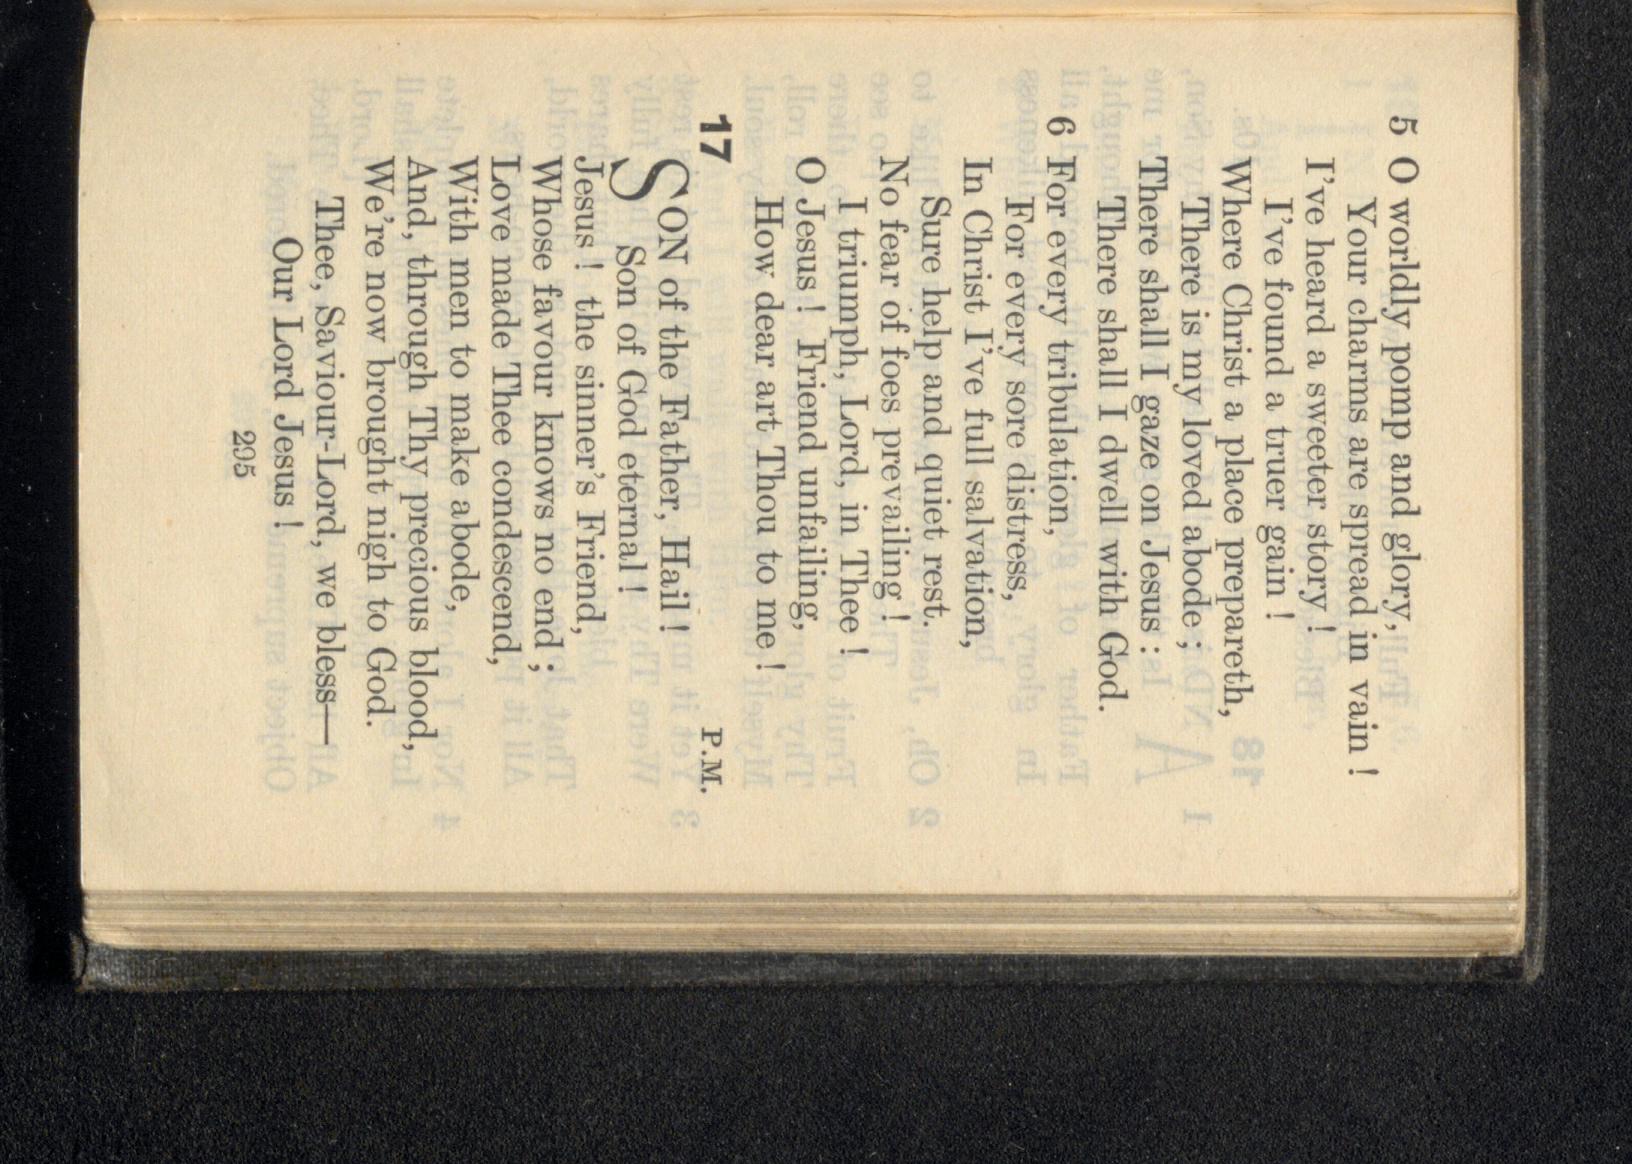 5 O worldly pomp and glory,
Your charms are spread in vain !
I've heard a sweeter story !
I've found a truer gain !
Where Christ a place prepareth,
There is my loved abode ;
There shall I gaze on Jesus :
There shall I dwell with God.
6 For every tribulation,
For every sore distress,
In Christ I've full salvation,
Sure help and quiet rest.
No fear of foes prevailing !
I triumph, Lord, in Thee !
O Jesus ! Friend unfailing,
How dear art Thou to me !
17 P.M.
SON of the Father, Hail !
Son of God eternal !
Jesus ! the sinner's Friend,
Whose favour knows no end ;
Love made Thee condescend,
With men to make abode,
And, through Thy precious blood,
We're now brought nigh to God.
Thee, Saviour-Lord, we bless—
Our Lord Jesus !
295